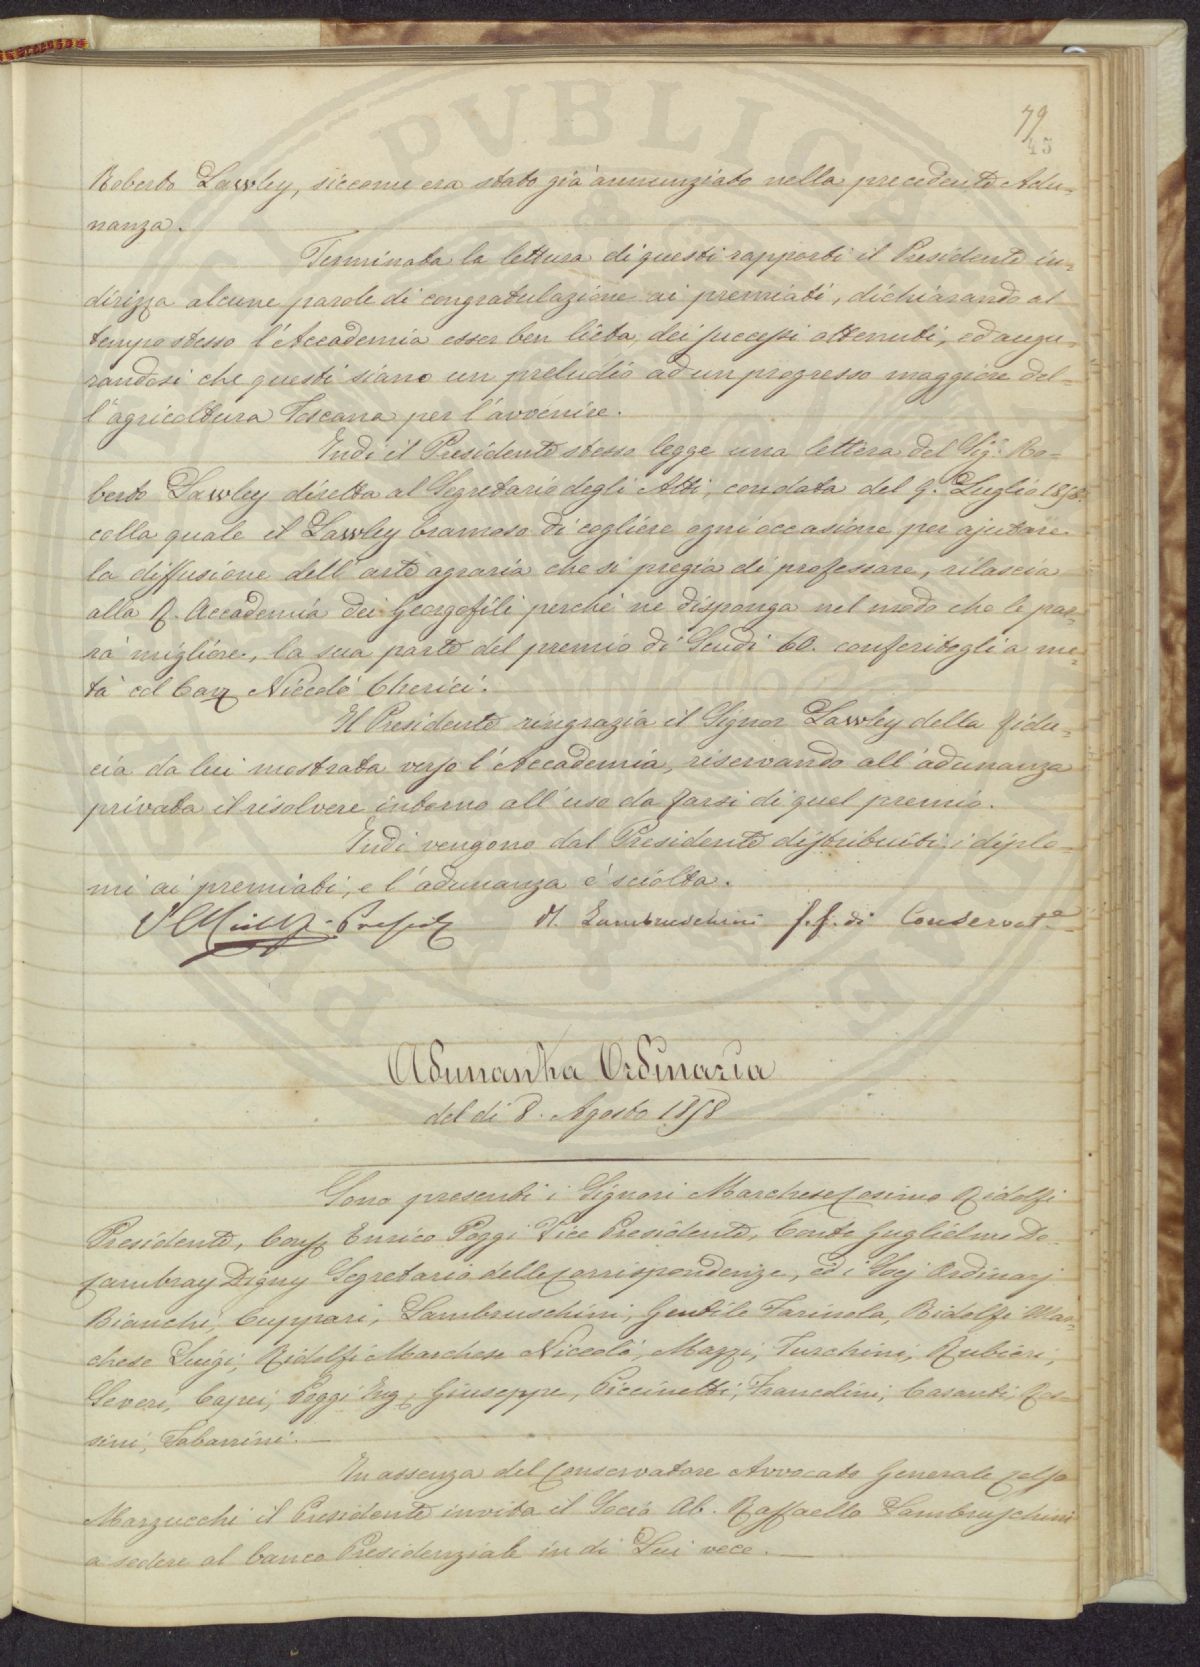 79
45
Roberto Lawley, siccome era stato già annunziato nella precedente Adu=
nanza.
Terminata la lettura di questi rapporti il Presidente in=
dirizza alcune parole di congratulazione ai premiati, dichiarando al
tempo stesso l'Accademia esser ben lieta dei successi ottenuti, ed augu=
randosi che questi siano un preludio ad un progresso maggiore del=
l'agricoltura Toscana per l'avvenire.
Indi il Presidente stesso legge una lettera del Sig.r Ro=
berto Lawley diretta al Segretario degli Atti, con data del 9. Luglio 1858.
colla quale il Lawley bramoso di cogliere ogni occasione per ajutare
la diffusione dell'arte agraria che si pregia di professare, rilascia
alla R. Accademia dei Georgofili perchè ne disponga nel modo che le par=
rà migliore, la sua parte del premio di Scudi 60. conferitogli a me=
tà col Cav. Niccolò Cherici.
Il Presidente ringrazia il Signor Lawley della fidu=
cia da lui mostrata verso l'Accademia, riservando all'adunanza
privata il risolvere intorno all'uso da farsi di quel premio.
Indi vengono dal Presidente distribuiti i diplo=
mi ai premiati, e l'adunanza è sciolta.
R. Lambruschini f.f. di Conservat.e
Adunanza Ordinaria
del di 8. Agosto 1858
Sono presenti i Signori Marchese Cosimo Ridolfi
Presidente, Cons.r Enrico Poggi Vice Presidente, Conte Guglielmo De
Cambray Digny Segretario delle Corrispondenze, ed i Socj Ordinarj
Bianchi, Cuppari, Lambruschini, Gentile Farinola, Ridolfi Mar=
chese Luigi, Ridolfi Marchese Niccolò, Mazzi, Turchini, Rubieri,
Severi, Capei, Poggi Ing.r Giuseppe, Piccinetti, Francolini, Casanti, Ros=
sini, Tabarrini. —
In assenza del Conservatore Avvocato Generale Celso
Marzucchi il Presidente invita il Socio Ab. Raffaello Lambruschini
a sedere al banco Presidenziale in di Lui vece. —
PVBLICA